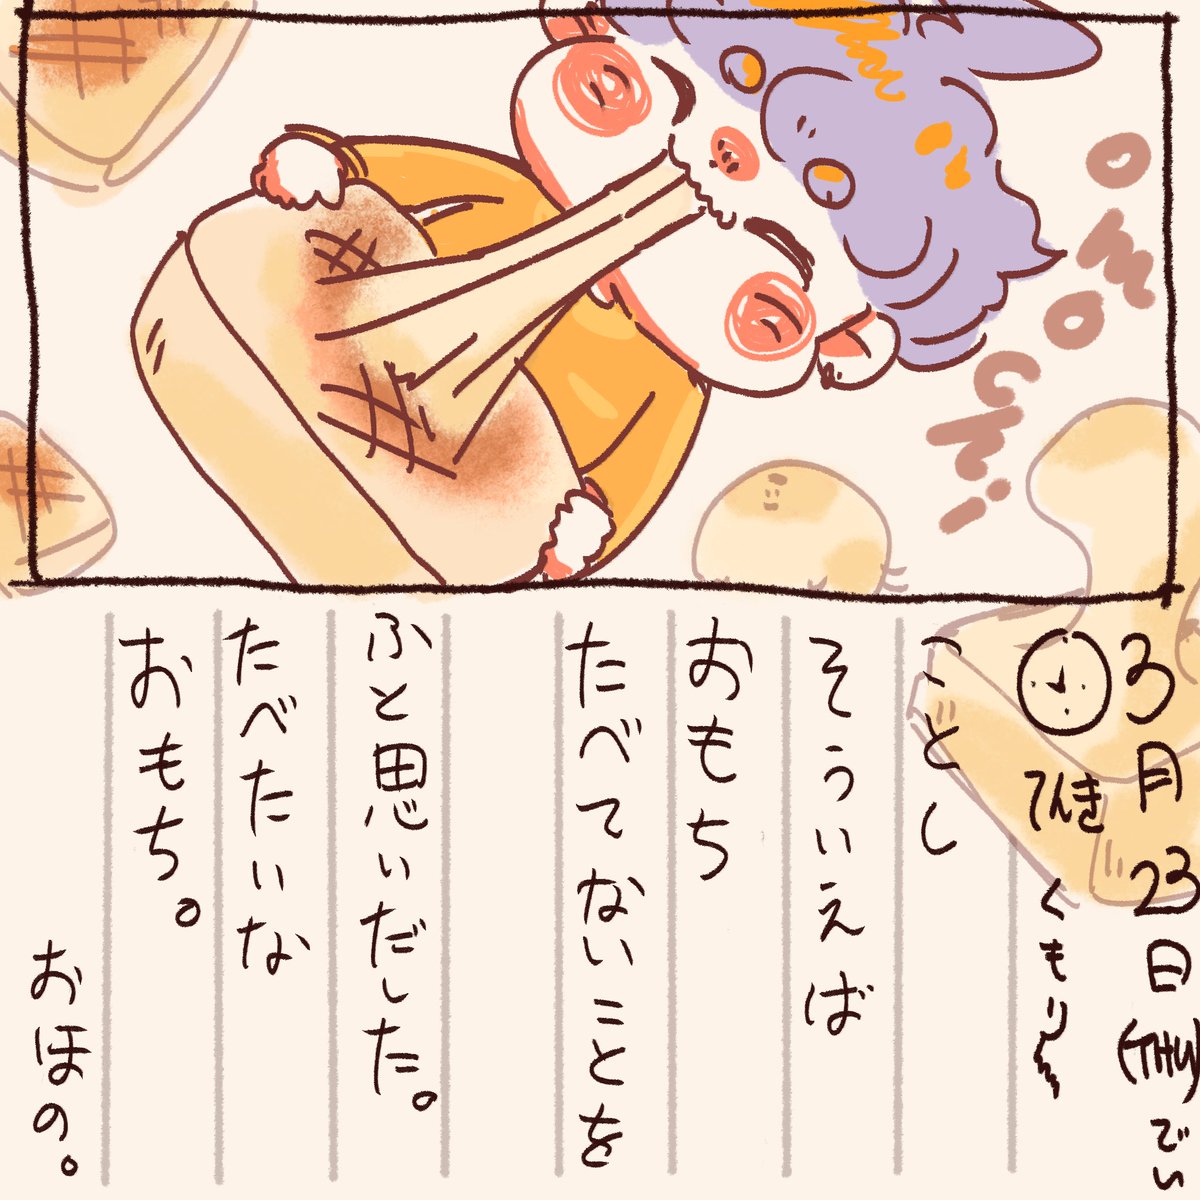 omochi
3月23日(THU)でい
てんき くもり〜
ことし
そういえば
おもち
たべてないことを
ふと思いだした。
たべたいな
おもち。
おほの。